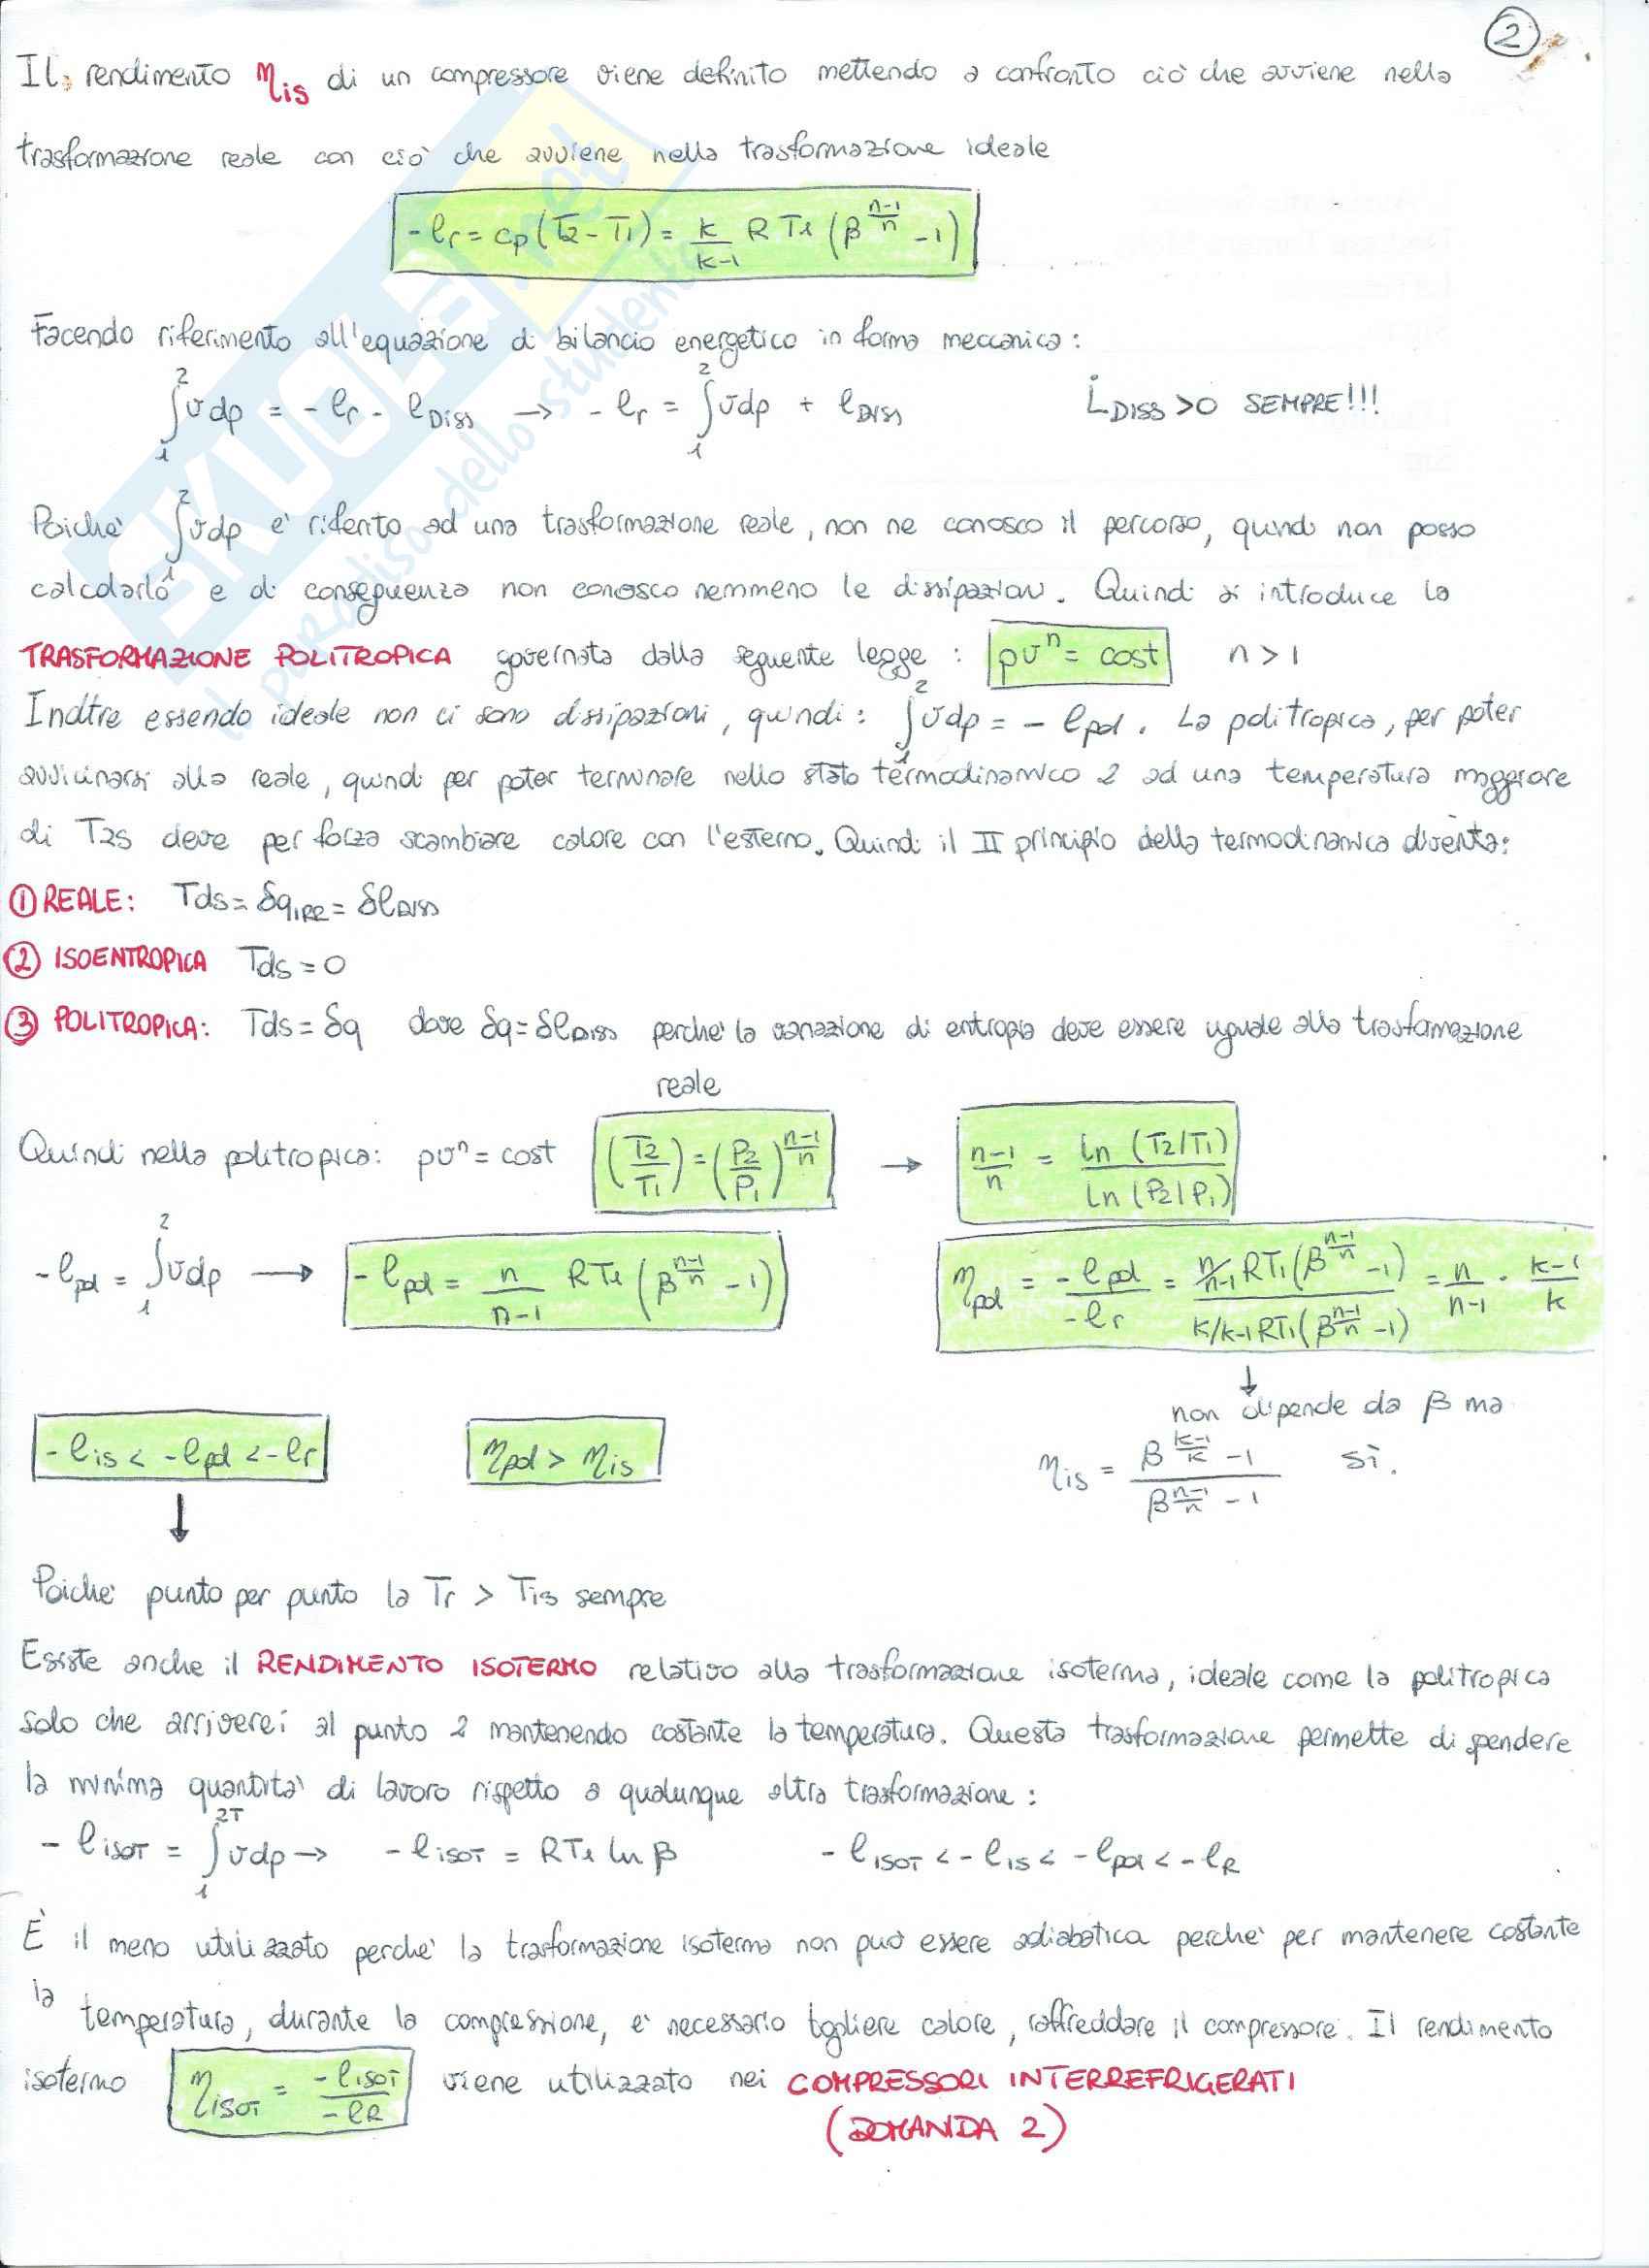 2
Il rendimento ηis di un compressore viene definito mettendo a confronto ciò che avviene nella
trasformazione reale con ciò che avviene nella trasformazione ideale
-lr = cp(T2-T1) = k/k-1 R T1 (β^(n-1/n) -1)
Facendo riferimento all'equazione di bilancio energetico in forma meccanica:
∫₁² vdp = -lr - lDiss → -lr = ∫₁² vdp + lDiss LDISS >0 SEMPRE!!!
Poiche' ∫₁² vdp e' riferito ad una trasformazione reale, non ne conosco il percorso, quindi non posso
calcolarlo e di conseguenza non conosco nemmeno le dissipazioni. Quindi si introduce la
TRASFORMAZIONE POLITROPICA governata dalla seguente legge: pvⁿ = cost n > 1
Inoltre essendo ideale non ci sono dissipazioni, quindi: ∫₁² vdp = -lpol. La politropica, per poter
avvicinarsi alla reale, quindi per poter terminare nello stato termodinamico 2 ad una temperatura maggiore
di T2s deve per forza scambiare calore con l'esterno. Quindi il II principio della termodinamica diventa:
① REALE: Tds = δqIRR = δlDiss
② ISOENTROPICA Tds = 0
③ POLITROPICA: Tds = δq dove δq = δlDiss perche' la variazione di entropia deve essere uguale alla trasformazione
reale
Quindi nella politropica: pvⁿ = cost (T2/T1) = (P2/P1)^(n-1/n) → n-1/n = ln (T2/T1) / ln (P2/P1)
-lpol = ∫₁² vdp → -lpol = n/n-1 RT1 (β^(n-1/n) -1) ηpol = -lpol/-lr = n/n-1 RT1 (β^(n-1/n) -1) / k/k-1 RT1 (β^(n-1/n) -1) = n/n-1 · k-1/k
↓
non dipende da β ma
-lis < -lpol < -lr ηpol > ηis ηis = β^(k-1/k) -1 / β^(n-1/n) -1 sì.
↓
Poiche' punto per punto la Tr > Tis sempre
Esiste anche il RENDIMENTO ISOTERMO relativo alla trasformazione isoterma, ideale come la politropica
solo che arriverei al punto 2 mantenendo costante la temperatura. Questa trasformazione permette di spendere
la minima quantita' di lavoro rispetto a qualunque altra trasformazione:
-lisoT = ∫₁²ᵀ vdp → -lisoT = RT1 ln β -lisoT < -lis < -lpol < -lR
È il meno utilizzato perche' la trasformazione isoterma non può essere adiabatica perche' per mantenere costante
la temperatura, durante la compressione, e' necessario togliere calore, raffreddare il compressore. Il rendimento
isotermo ηisoT = -lisoT/-lR viene utilizzato nei COMPRESSORI INTERREFRIGERATI
(DOMANDA 2)
SKUOLA.net
il paradiso dello studente